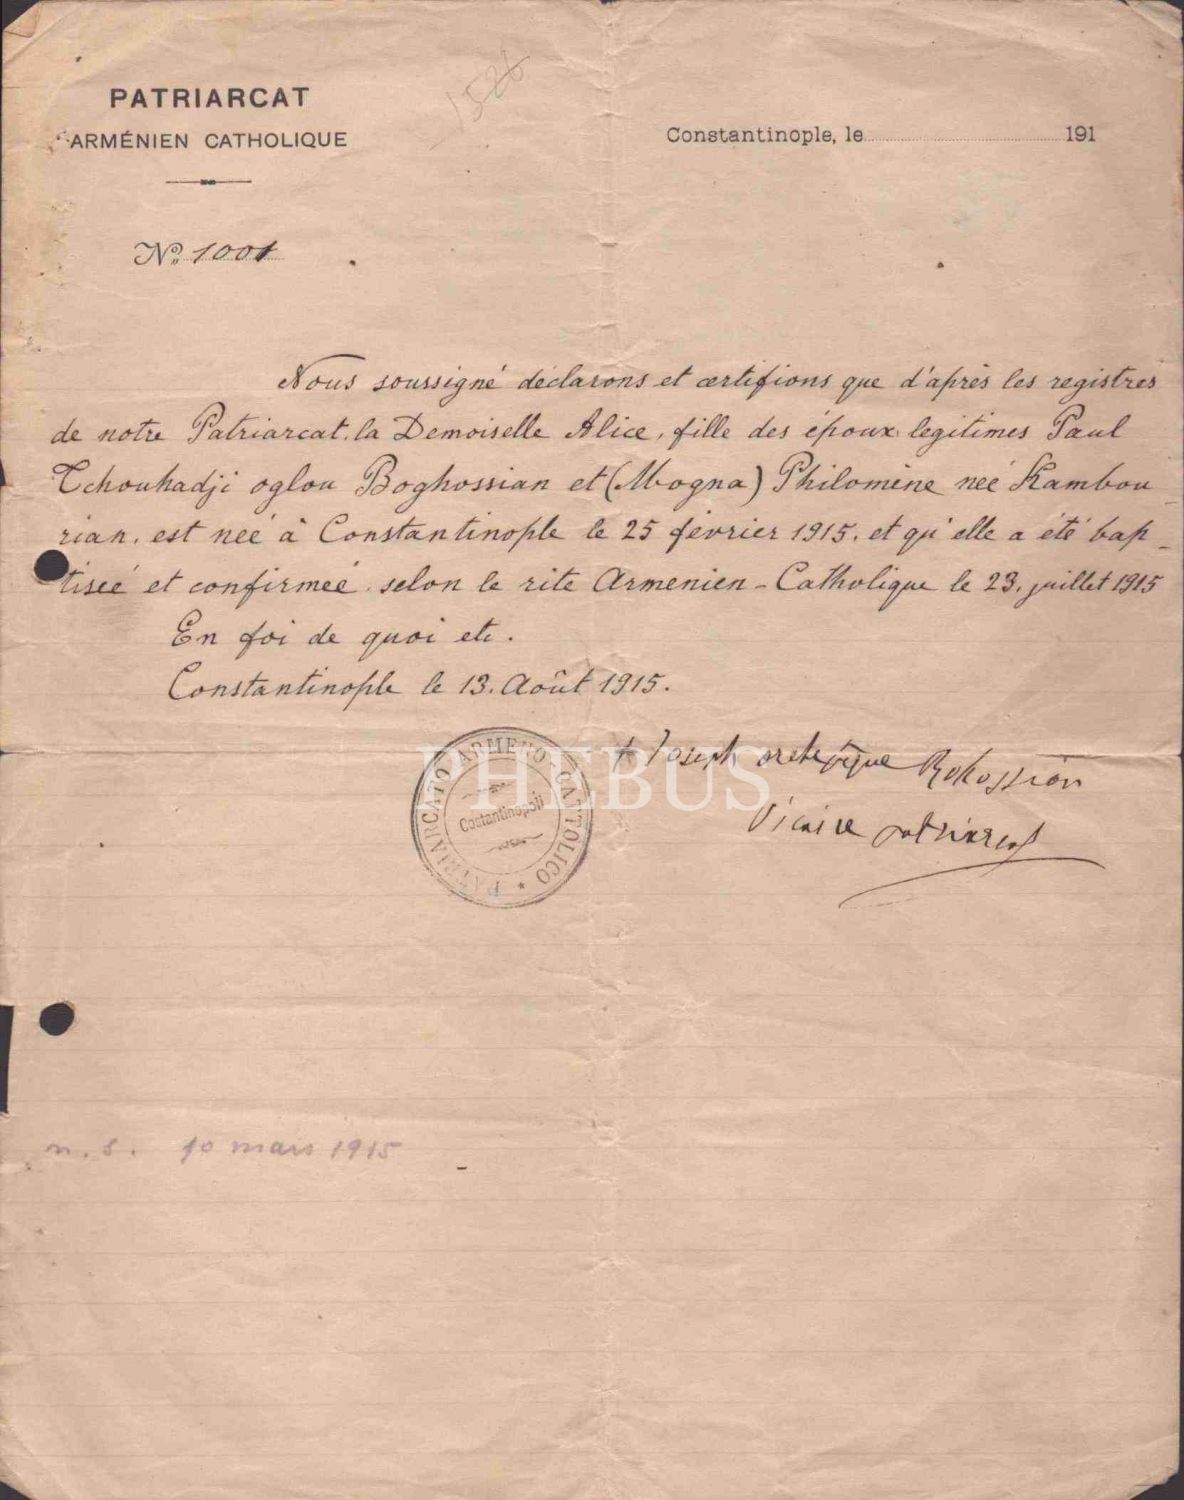 1526
PATRIARCAT
ARMÉNIEN CATHOLIQUE
Constantinople, le 191
No. 1001
Nous soussigné déclarons et certifions que d'après les registres
de notre Patriarcat, la Demoiselle Alice, fille des époux légitimes Paul
Tchouhadji oglou Boghossian et (Mogna) Philomène neé Kambou
rian, est neé à Constantinople le 25 février 1915, et qu'elle a été bap-
tiseé et confirmeé selon le rite Armenien-Catholique le 23, juillet 1915
En foi de quoi etc.
Constantinople le 13. Août 1915.
PATRIARCATO ARMENO CATTOLICO
Costantinopoli
PHEBUS
+ Joseph archevêque Rokossian
Vicaire patriarcal
n. s. 10 mars 1915